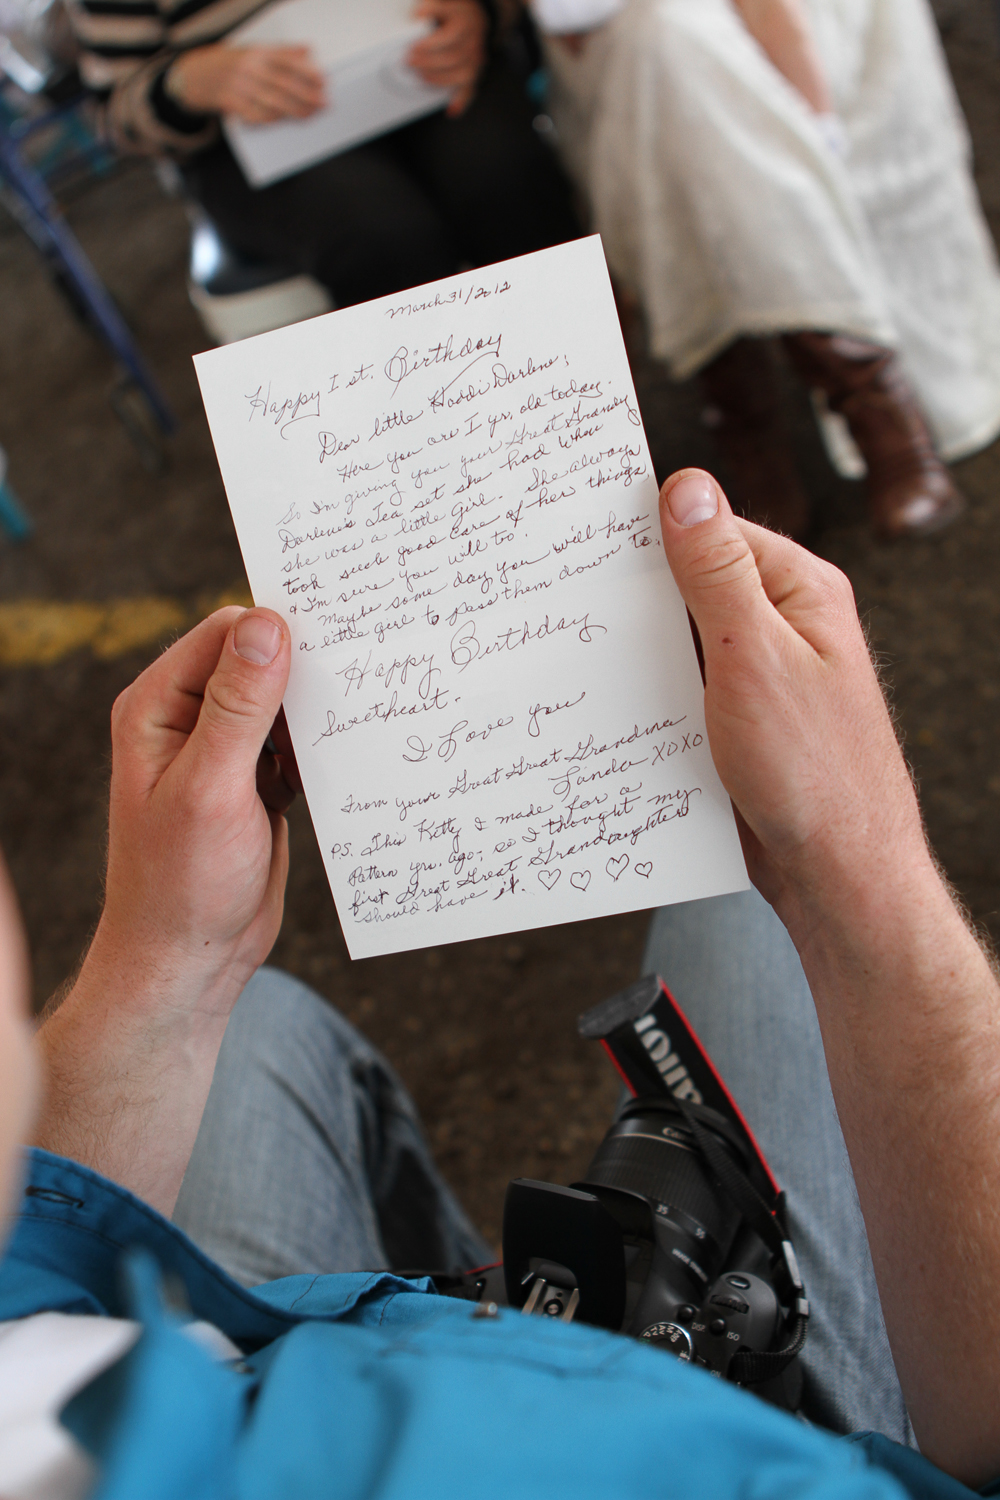 March 31/2012
Happy 1st. Birthday
Dear little Haddi Darlene;
Here you are 1 yr. old today.
So I'm giving you your Great Grandy
Darlene's Tea set she had when
she was a little Girl. She always
took such good care of her things,
& I'm sure you will too.
Maybe some day you will have
a little girl to pass them down to.
Happy Birthday
Sweetheart.
I Love you
From your Great Great Grandma
Linda XOXO
P.S. This Kitty I made for a
Pattern yrs. ago; so I thought my
first Great Great Grandaughter
should have it. ♡ ♡ ♡ ♡
Canon
35
55
DISP.
ISO